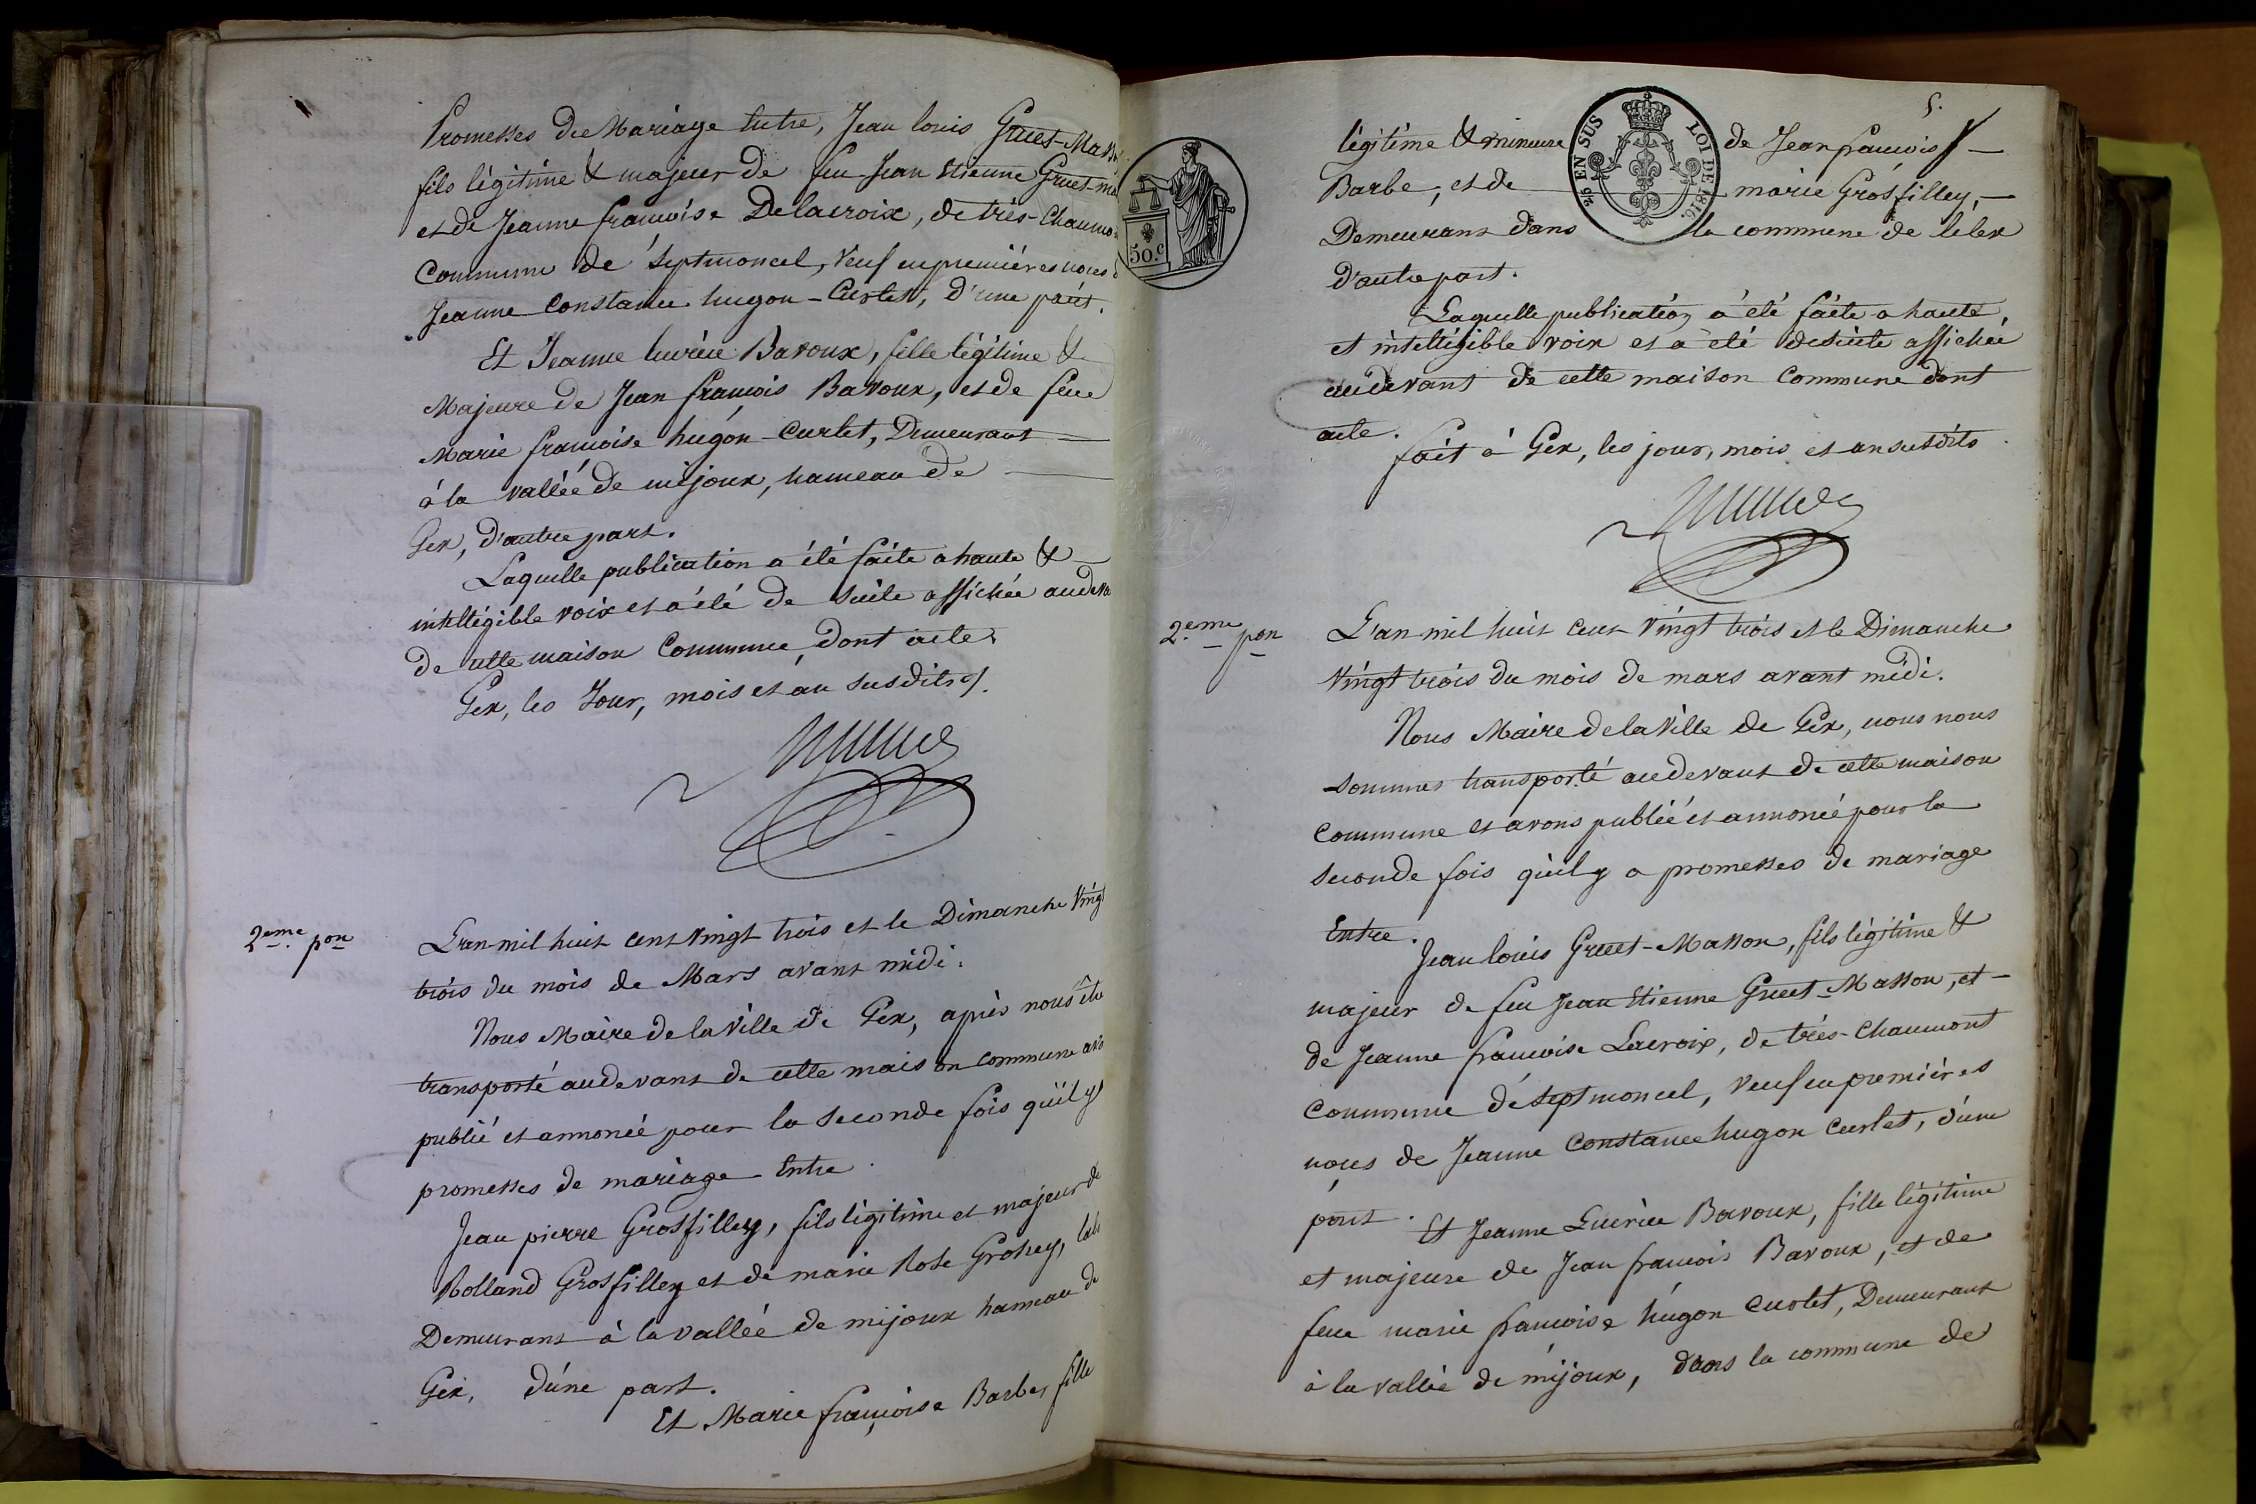 Promesses de Mariage Entre, Jean louis Gruet-Mass
fils légitime & majeur de feu Jean Etienne Gruet-ma
et de Jeanne françoise Delacroix, de très-Chaumo
Commune de Septmoncel, Veuf en premières noces d
Jeanne Constance hugon-Curlet, d'une part.
Et Jeanne lucrèce Bavoux, fille légitime &
Majeure de Jean françois Bavoux, et de feue
Marie françoise hugon-Curlet, Demeurant
à la vallée de mijoux, hameau de
Gex, d'autre part.
Laquelle publication a été faite a haute &
intelligible voix et a été de suite affichée audeva
de cette maison Commune, dont acte.
Gex, les Jour, mois et an susdits.
2eme pon
L'an mil huit cent Vingt trois et le Dimanche Vingt
trois du mois de Mars avant midi.
Nous Maire de la Ville de Gex, après nous être
transporté audevant de cette maison commune avo
publié et annoncé pour la seconde fois qu'il y
promesses de mariage Entre
Jean pierre Grosfilley, fils légitime et majeur de
Rolland Grosfilley et de marie Rose
Demeurant à la vallée de mijoux hameau de
Gex, d'une part.
Et Marie françoise Barbe, fille
50.c
5.
25 EN SUS LOI DE 1816.
légitime & mineure de Jean françois
Barbe, et de marie Grosfilley,
Demeurant dans la commune de lelex
d'autre part.
Laquelle publication a été faite a haute,
et intelligible voix et a été desuite affichée
audevant de cette maison Commune dont
acte.
fait à Gex, les jour, mois et an susdits
2eme pon
L'an mil huit cent Vingt trois et le Dimanche
Vingt trois du mois de mars avant midi.
Nous Maire de la Ville de Gex, nous nous
sommes transporté audevant de cette maison
commune et avons publié et annoncé pour la
seconde fois qu'il y a promesses de mariage
Entre.
Jean louis Gruet-Masson, fils légitime &
majeur de feu Jean Etienne Gruet-Masson, et
de Jeanne françoise Lacroix, de très-Chaumont
commune de Septmoncel, Veuf en premières
noces de Jeanne Constance hugon Curlet, d'une
part.
Et Jeanne Lucrèce Bavoux, fille légitime
et majeure de Jean françois Bavoux, et de
feue marie françoise hugon Curlet, Demeurant
à la vallée de mijoux, dans la commune de